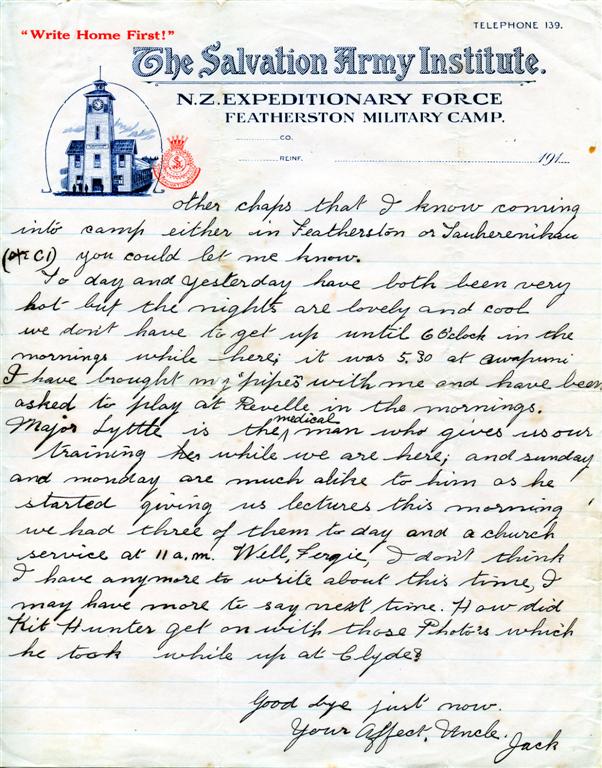 "Write Home First!"
TELEPHONE 139.
The Salvation Army Institute.
N.Z. EXPEDITIONARY FORCE
FEATHERSTON MILITARY CAMP.
CO.
REINF. 191
other chaps that I know coming
into camp either in Featherston or Tauherenikau
(C1) you could let me know.
To day and yesterday have both been very
hot but the nights are lovely and cool
we don't have to get up until 6 O'clock in the
mornings while here; it was 5.30 at Awapuni
I have brought my "pipes" with me and have been
asked to play at Revelle in the mornings.
Major Lyttle is the medical man who gives us our
training while we are here; and sunday
and monday are much alike to him as he
started giving us lectures this morning
we had three of them to day and a church
service at 11 a.m. Well, Fergie, I don't think
I have anymore to write about this time, I
may have more to say next time. How did
Kit Hunter get on with those Photo's which
he took while up at Clyde?
Good bye just now.
Your Affect. Uncle.
Jack